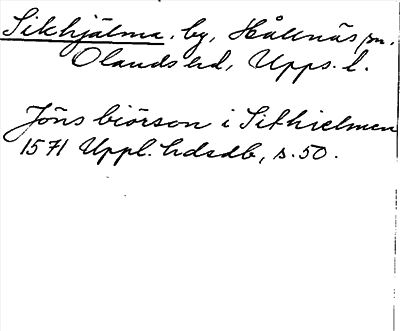 Sikhjälma, by, Hållnäs sn.
Olands hd, Upps. l.
Jöns biörson i Sikhielmen
1571 Uppl. hdsdb, s. 50.